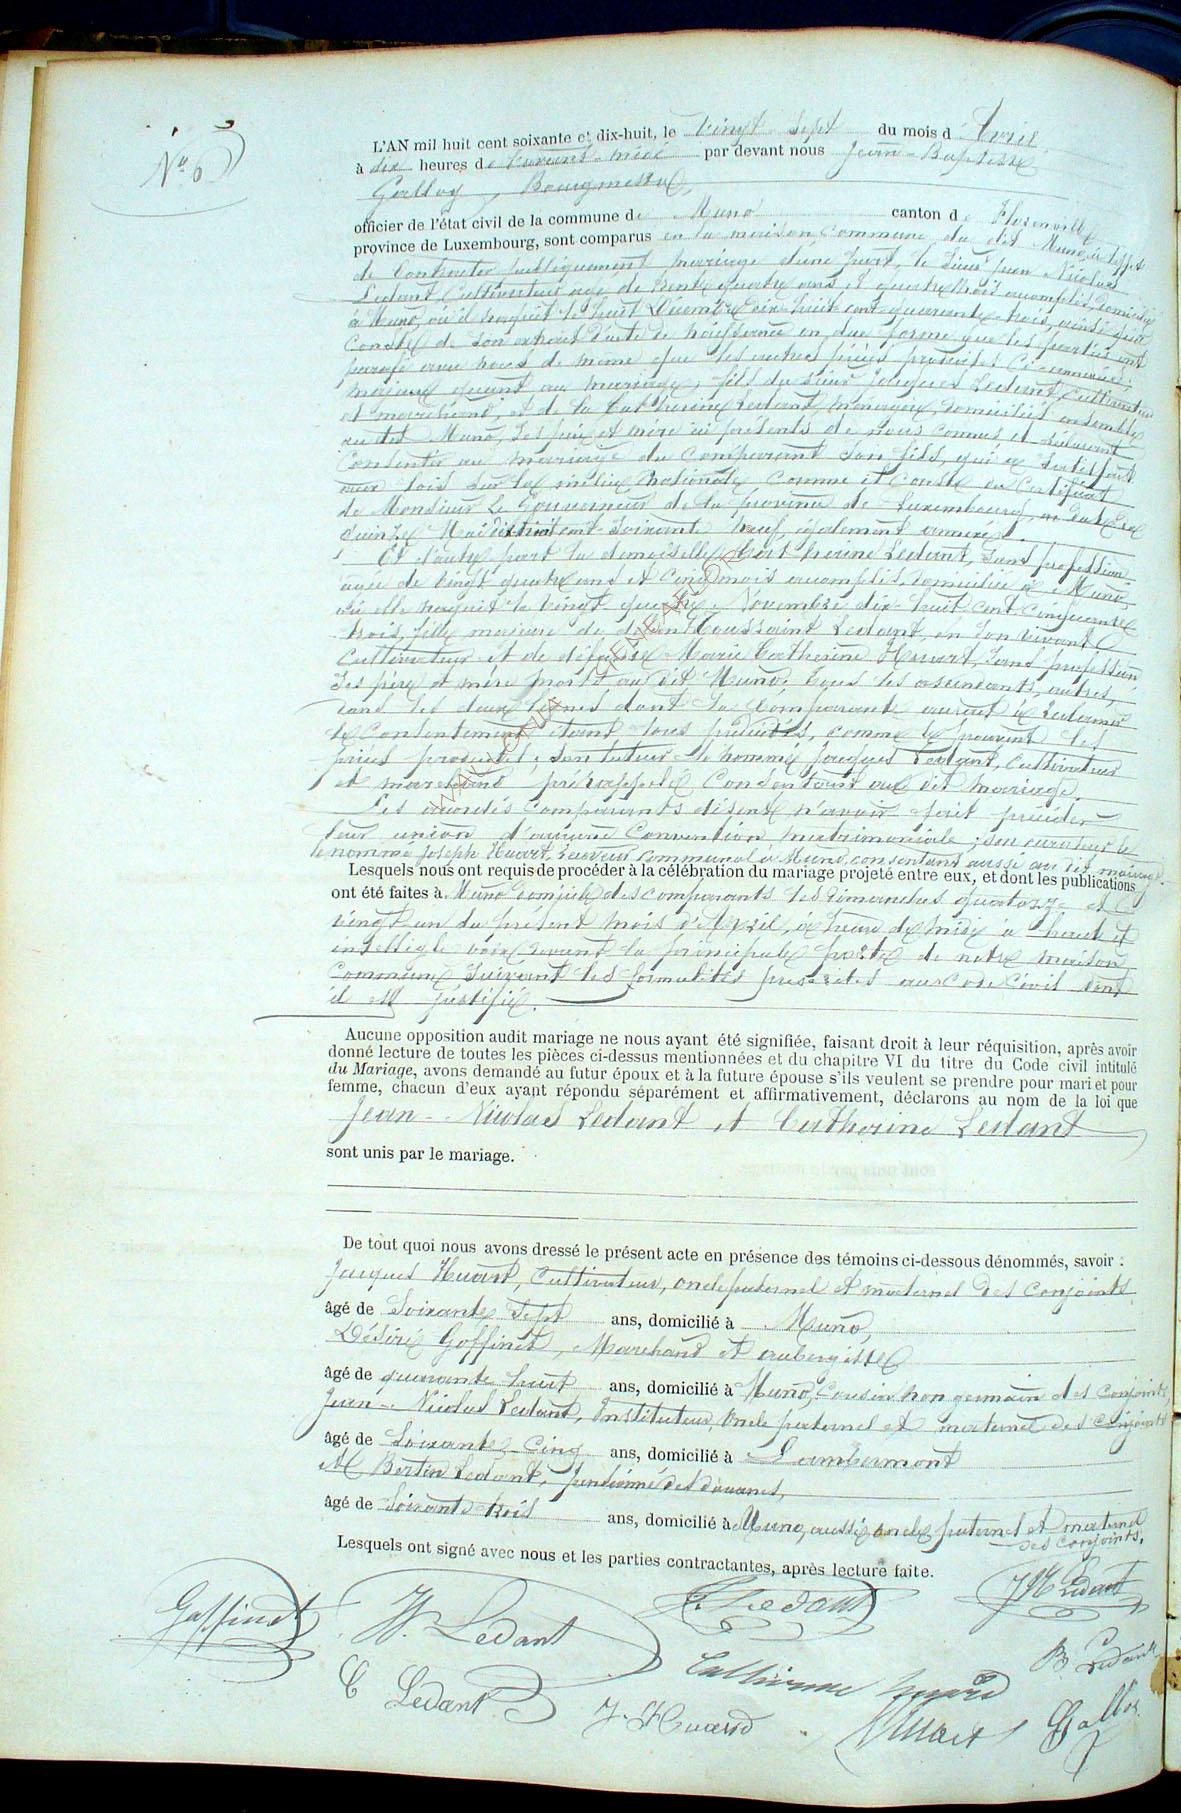 N° 6
L'AN mil huit cent soixante et dix-huit, le vingt sept du mois d'Avril
à dix heures de avant-midi par devant nous Jean-Baptiste
Galloy, Bourgmestre
officier de l'état civil de la commune de Muno canton de Florenville
province de Luxembourg, sont comparus en la maison commune du dit Muno, à l'effet
de contracter publiquement mariage d'une part, le sieur Jean Nicolas
Ledant, Cultivateur âgé de trente quatre ans et quatre mois accomplis, domicilié
à Muno, où il naquit le huit Décembre dix-huit cent quarante-trois, ainsi que
conste de son extrait d'acte de naissance en due forme que les parties ont
paraphé avec nous de même que les autres pièces produites ci-annexées,
majeur quant au mariage, fils du sieur Jacques Ledant, cultivateur
et marchand, et de la Catherine Ledant, ménagère, domiciliés ensemble
au dit Muno, ses père et mère ici présents de nous connus et déclarant
consentir au mariage du comparant son fils, qui a satisfait
aux lois sur la milice nationale comme il conste du certificat
de Monsieur Le Gouverneur de la province de Luxembourg, en date du
quinze Mai dix huit cent soixante neuf, également annexé.
Et d'autre part la demoiselle Catherine Ledant, sans profession
âgée de vingt quatre ans et cinq mois accomplis, domiciliée à Muno,
où elle naquit le vingt quatre Novembre dix-huit cent cinquante
trois, fille majeure de défunt Toussaint Ledant, en son vivant
Cultivateur et de défunte Marie Catherine Huart, sans profession
ses père et mère morts au dit Muno. Tous les ascendants, autres,
dans les deux lignes dont la comparante aurait à réclamer
le consentement étant tous prédécédés, comme le prouvent les
pièces produites; son tuteur le nommé Jacques Ledant, cultivateur
et marchand prérappelé consentant au dit mariage.
Les accordés comparants disent n'avoir fait précéder
leur union d'aucune convention matrimoniale; son curateur le
le nommé Joseph Huart, receveur communal à Muno, consentant aussi au dit mariage.
Lesquels nous ont requis de procéder à la célébration du mariage projeté entre eux, et dont les publications
ont été faites à Muno domicile des comparants les dimanches quatorze et
vingt un du présent mois d'Avril, à heure de midi à haute et
intelligible voix, devant la principale porte de notre maison
commune suivant les formalités prescrites au code civil dont
il est justifié.
Aucune opposition audit mariage ne nous ayant été signifiée, faisant droit à leur réquisition, après avoir
donné lecture de toutes les pièces ci-dessus mentionnées et du chapitre VI du titre du Code civil intitulé
du Mariage, avons demandé au futur époux et à la future épouse s'ils veulent se prendre pour mari et pour
femme, chacun d'eux ayant répondu séparément et affirmativement, déclarons au nom de la loi que
Jean-Nicolas Ledant et Catherine Ledant
sont unis par le mariage.
De tout quoi nous avons dressé le présent acte en présence des témoins ci-dessous dénommés, savoir :
Jacques Huart, Cultivateur, oncle paternel et maternel des conjoints
âgé de Soixante Sept ans, domicilié à Muno,
Désiré Goffinet, Marchand et aubergiste
âgé de quarante huit ans, domicilié à Muno, cousin non germain des conjoints,
Jean-Nicolas Ledant, Instituteur, Oncle paternel et maternel des conjoints
âgé de Soixante Cinq ans, domicilié à Lambermont
Et Bertin Ledant, pensionné des douanes,
âgé de Soixante trois ans, domicilié à Muno, aussi oncle paternel et maternel
des conjoints.
Lesquels ont signé avec nous et les parties contractantes, après lecture faite.
Goffinet N. Ledant J. Ledant JN Ledant
C Ledant J. Huard Catherine B Ledant
Huart Galloy